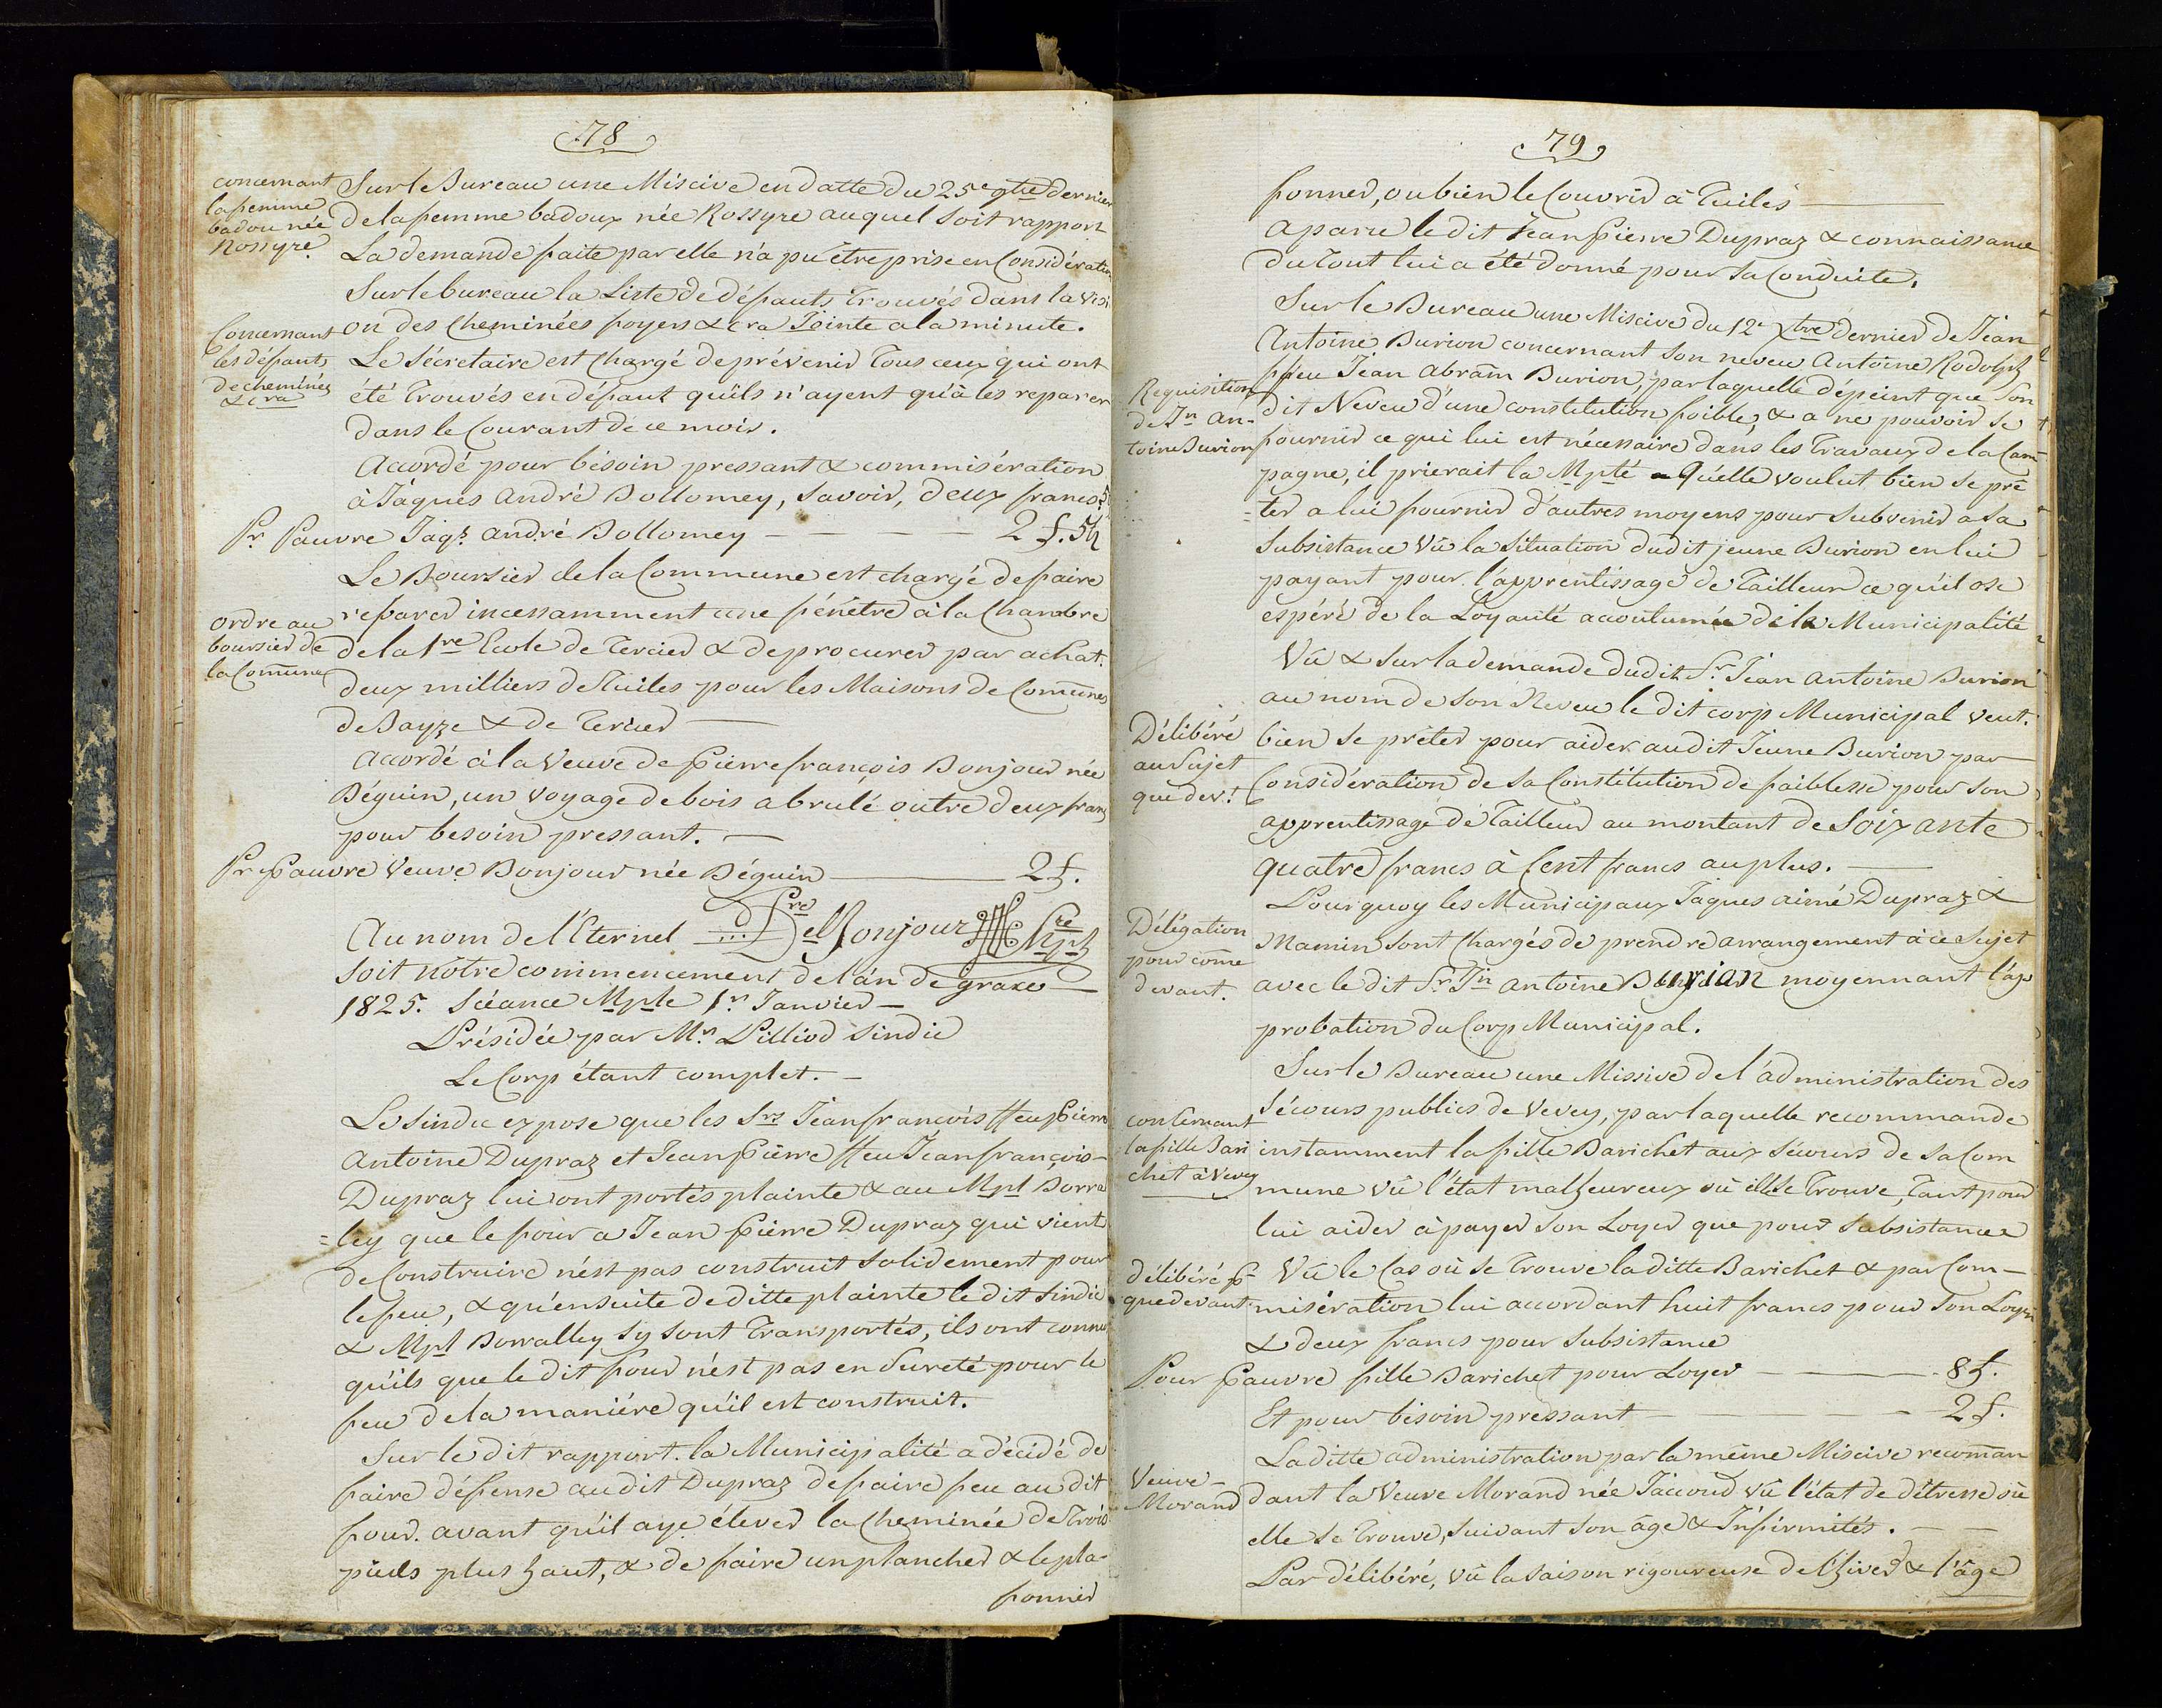 78
concernant
la femme
badou née
Rossyre.
Sur le Bureau une Miscive en datte du 25e 9bre dernier
de la femme badoux née Rossyre auquel soit rapport
La demande faite par elle n'a pu être prise en Considération
Sur le bureau la Liste de défauts trouvés dans la visi
Concernant
les défauts
de cheminées
& cra
on des Cheminées foyers & cra Jointe a la minute.
Le Sécretaire est Chargé de prévenir tous ceux qui ont
été trouvés en défaut qu'ils n'ayent qu'à les reparer
dans le Courant de ce mois.
Accordé pour bésoin pressant & commisération
à Jâques André Bollomey, savoir, deux francs 5
Pr Pauvre Jaqs André Bollomey — — — — 2 f. 5
Le Boursier de la Commune est chargé de faire
ordre au
boursier de
la Comune
reparer incessamment une fénêtre à la Chambre
de la 1re Ecole de Tercier & de procurer par achat
deux milliers de Tuiles pour les Maisons de Comunes
de Bayze & de Tercier —
Accordé à la Veuve de Pierre françois Bonjour née
Béguin, un voyage de bois a brulé outre deux francs
pour besoin pressant. —
Pr Pauvre Veuve Bonjour née Béguin — 2 f.
Au nom de l'Eternel Bonjour
soit nôtre commencement de l'an de grace
1825. Séance Mple 1r Janvier —
Présidée par Mr Pilliod Sindic
Le Corp étant complet. —
Le Sindic expose que les Srs Jean françois ffeu Pierre
Antoine Dupraz et Jean Pierre ffeu Jean françois
Dupraz lui ont portés plainte & au Mpl Borra
=ley que le four a Jean Pierre Dupraz qui vient
de Construire n'est pas construit solidement pour
le feu, & qu'ensuite de ditte plainte le dit Sindic
& Mpl Borralley sy sont transportés, ils ont connu
qu'ils que le dit four n'est pas en Sureté pour le
feu de la maniére qu'il est construit.
Sur le dit rapport. la Municipalité a décidé de
faire défense au dit Dupraz de faire feu au dit
four. avant qu'il aye élever la Cheminée de trois
pieds plus haut, & de faire un plancher & le pla-
fonner
79
fonner, ou bien le Couvrir à Tuiles —
a paru le dit Jean Pierre Dupraz & connaissance
du tout lui a été donné pour sa Conduite.
Sur le Bureau une Miscive du 12e Xbre dernier de Jean
Antoine Burion concernant son neveu Antoine Rodolph
Requisition
de Jn An-
toine Burion
ffeu Jean Abram Burion, par laquelle dépeint que Son
dit Neveu d'une constitution foible, & a ne pouvoir se
fournir ce qui lui est nécessaire dans les Travaux de la Cam
pagne, il prierait la Mpté qu'elle voulut bien se prê
=ter a lui fournir d'autres moyens pour Subvenir a Sa
Subsistance Vû la Situation dudit jeune Burion en lui
payant pour l'apprentissage de Tailleur ce qu'il ose
espéré de la Loyauté accoutumée de la Municipalité
Vû & sur la demande dudit Sr Jean Antoine Burion
au nom de Son Neveu le dit corp Municipal veut
Délibéré
au Sujet
que devt
bien se prêter pour aider audit Jeune Burion par
Considération de Sa Constitution de faiblesse pour Son
apprentissage de Tailleur au montant de Soixante
quatre francs à Cent francs au plus. —
Pourquoy les Municipaux Jaques aimé Dupraz &
Délégation
pour come
devant.
Mamin sont Chargés de prendre arrangement à ce Sujet
avec le dit Sr Jn Antoine Burion moyennant l'ap
probation du Corp Municipal.
Sur le Bureau une Missive de l'administration des
concernant
la fille Bari
chet à Vevey
Sécours publics de Vevey, par laquelle recommande
instamment la fille Barichet aux Sécours de Sa Com
mune vû l'état malheureux où elle se trouve, tant pour
lui aider à payer Son Loyer que pour Subsistance
délibéré
que devant
Vû le Cas où se trouve la ditte Barichet & par Com-
misération lui accordant huit francs pour Son Loyer
& deux francs pour Subsistance
Pour Pauvre fille Barichet pour Loyer — — — 8 f.
Et pour bésoin pressant — — — 2 f.
La ditte administration par la même Miscive recoman
Veuve
Morand
dant la Veuve Morand née Jaccoud vû l'état de détresse où
elle se trouve, Suivant Son âge & Infirmités. — —
Par délibéré, vû la saison rigoureuse de l'hiver & l'âge